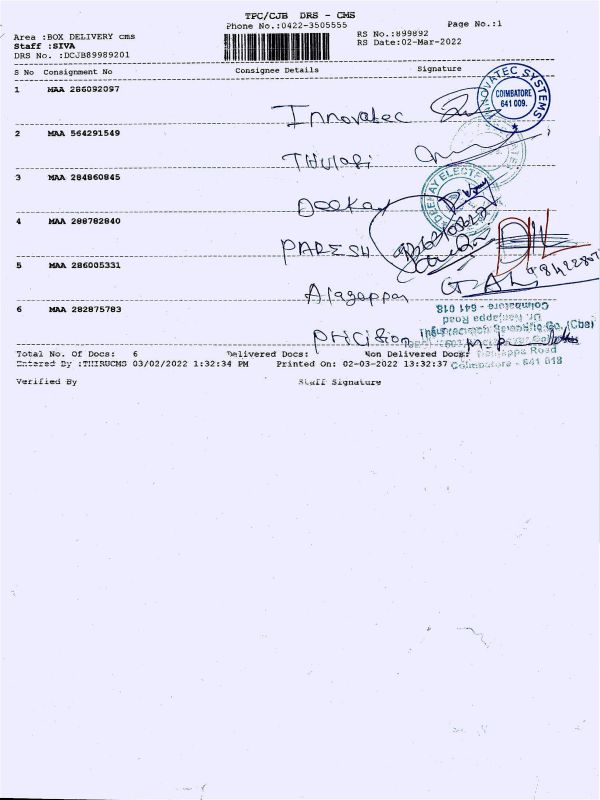 TPC/CJB DRS - CMS
Phone No.:0422-3505555
Page No.:1
Area :BOX DELIVERY cms
RS No.:899892
Staff :SIVA
RS Date:02-Mar-2022
DRS No. :DCJB89989201
S No Consignment No Consignee Details Signature
1 MAA 286092097
Innovatec
INNOVATEC SYSTEMS
COIMBATORE
641 009.
2 MAA 564291549
THulasi
3 MAA 284860845
Deekay
DEEKAY ELECT
4 MAA 288782840
PARESH
5 MAA 286005331
Alagappa
6 MAA 282875783
Coimbatore - 641 018
Dr. Nanjappa Road
Co. (Cbe)
Precision
Total No. Of Docs: 6 Delivered Docs: Non Delivered Docs:
Nanjappa Road
Entered By :THIRUCMS 03/02/2022 1:32:34 PM Printed On: 02-03-2022 13:32:37
Coimbatore - 641 018
Verified By Staff Signature